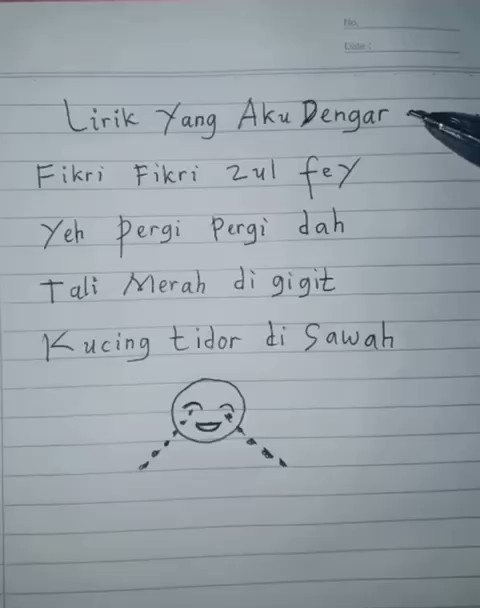 No.
Date :
Lirik Yang Aku Dengar
Fikri Fikri zul fey
Yeh pergi pergi dah
Tali Merah di gigit
Kucing tidor di Sawah